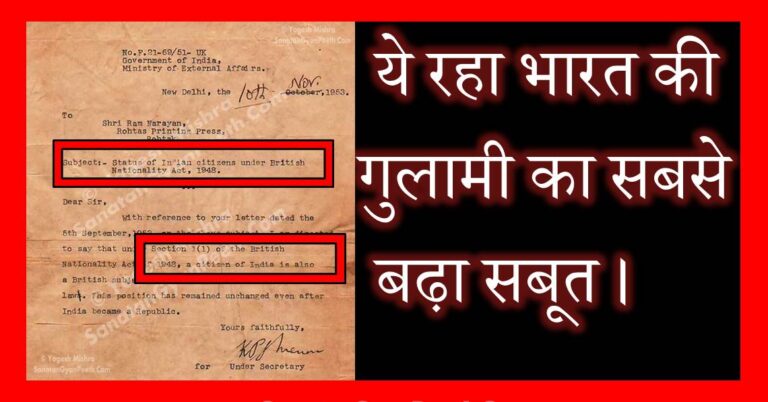 © Yogesh Mishra
SanatanGyanPeeth.Com
No.F.21-69/51- UK
Government of India,
Ministry of External Affairs.
New Delhi, the 10th Nov. October, 1953.
To
Shri Ram Narayan,
Rohtas Printing Press,
Rohtak
Subject:- Status of Indian citizens under British
Nationality Act, 1948.
Dear Sir,
With reference to your letter dated the
5th September, 1953, on the above subject, I am directed
to say that under Section 1(1) of the British
Nationality Act, 1948, a citizen of India is also
a British subject
law. This position has remained unchanged even after
India became a Republic.
Yours faithfully,
for Under Secretary
© Yogesh Mishra
SanatanGyanPeeth.Com
ये रहा भारत की
गुलामी का सबसे
बढ़ा सबूत।